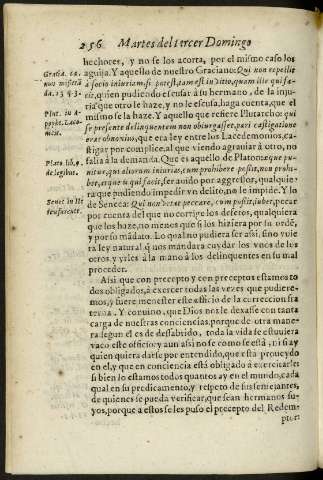 256 Martes del tercer Domingo
hechores, y no se los acorta, por el mismo caso los
aguija. Y aquello de nuestro Graciano: Qui non repellit
à socio iniuriam si potest, tam est in vitio, quam ille qui fa-
cit, quien pudiendo escusar a su hermano, de la injur
ia que otro le haze, y no le escusa, haga cuenta, que el
mismo se la haze. Y aquello que refiere Plutarcho: qui
se presente delinquentem non obiurgasset, pari castigatione
erat obnoxius, que era ley entre los Lacedemonios, ca-
stigar por complice, al que viendo agrauiar à otro, no
salia à la demanda. Que es aquello de Platon: æque pu-
nitur, qui aliorum iniurias, cum prohibere posset, non prohi-
bet, atque is qui facit, seran dos por aggressor, qualquie
ra que pudiendo impedir vn delito, no le impide. Y lo
de Seneca: Qui non vetat peccare, cum possit, iubet, pecar
por cuenta del que no corrige los defetos, qualquiera
que los haze, no menos que si los hiziera por su ordẽ,
y por su mãdato. Lo qual no pudiera ser assi, sino vuie
ra ley natural q̃ nos mandara cuydar los vnos de los
otros, y yrles à la mano à los delinquentes en su mal
proceder.
Assi que con precepto y con preceptos estamos to
dos obligados, à exercer todas las vezes que pudiere-
mos, y fuere menester este officio de la correccion fra
terna. Y conuino, que Dios nos le dexasse con tanta
carga de nuestras conciencias, porque de otra mane-
ra segun el es de desabrido, toda la vida se estuuiera
vaco este officio: y aun assi no se como se està, ni si ay
quien quiera darse por entendido, que està proueydo
en el, y que en conciencia està obligado à exercitarle:
si bien lo estamos todos quantos ay en el mundo, cada
qual en su predicamento, y respeto de sus semejantes,
de quienes se pueda verificar, que sean hermanos su-
yos, porque a estos se les puso el precepto del Redem-
ptor
Gratia. ca.
non inferẽda
23. q. 3.
Plut. in a-
popht. Laco-
nicis.
Plato lib. 9.
de legibus.
Senec. in He
rcu furente.